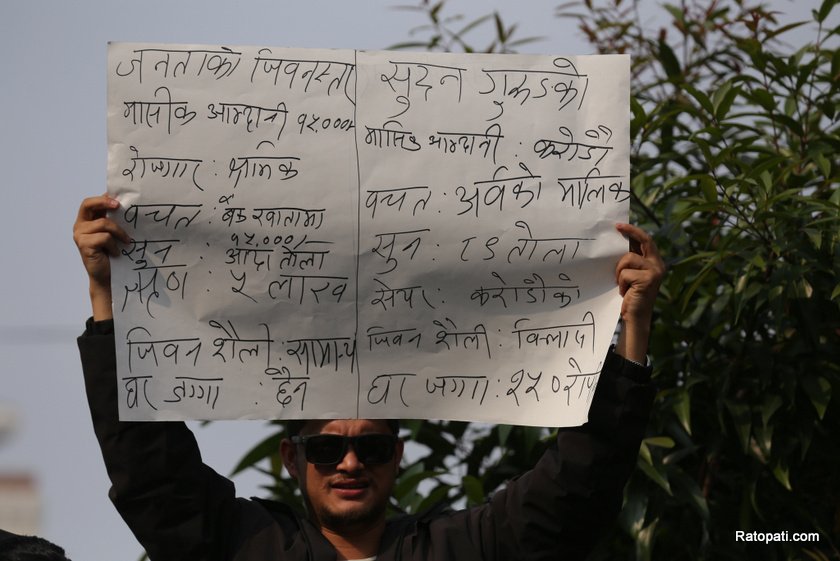 जनताको जिवनस्तर
मासीक आम्दानी १५,०००/-
रोज्गार : श्रमिक
वचत : बैंक खातामा
१५,०००/-
सुन : आधा तोला
ऋण : ५ लाख
जिवन शैली : सामान्य
घर जग्गा : छैन
सुदन गुरुङको
मासिक आम्दानी : करोडौ
वचत : अर्वको मालिक
सुन : ८९ तोला
सेयर : करोडौको
जिवन शैली : विलासी
घर जग्गा : २५० रोप
Ratopati.com